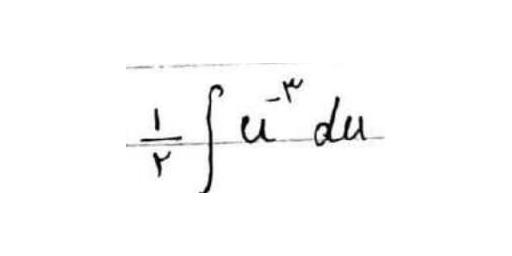 ۱/۲ ∫ u⁻۳ du